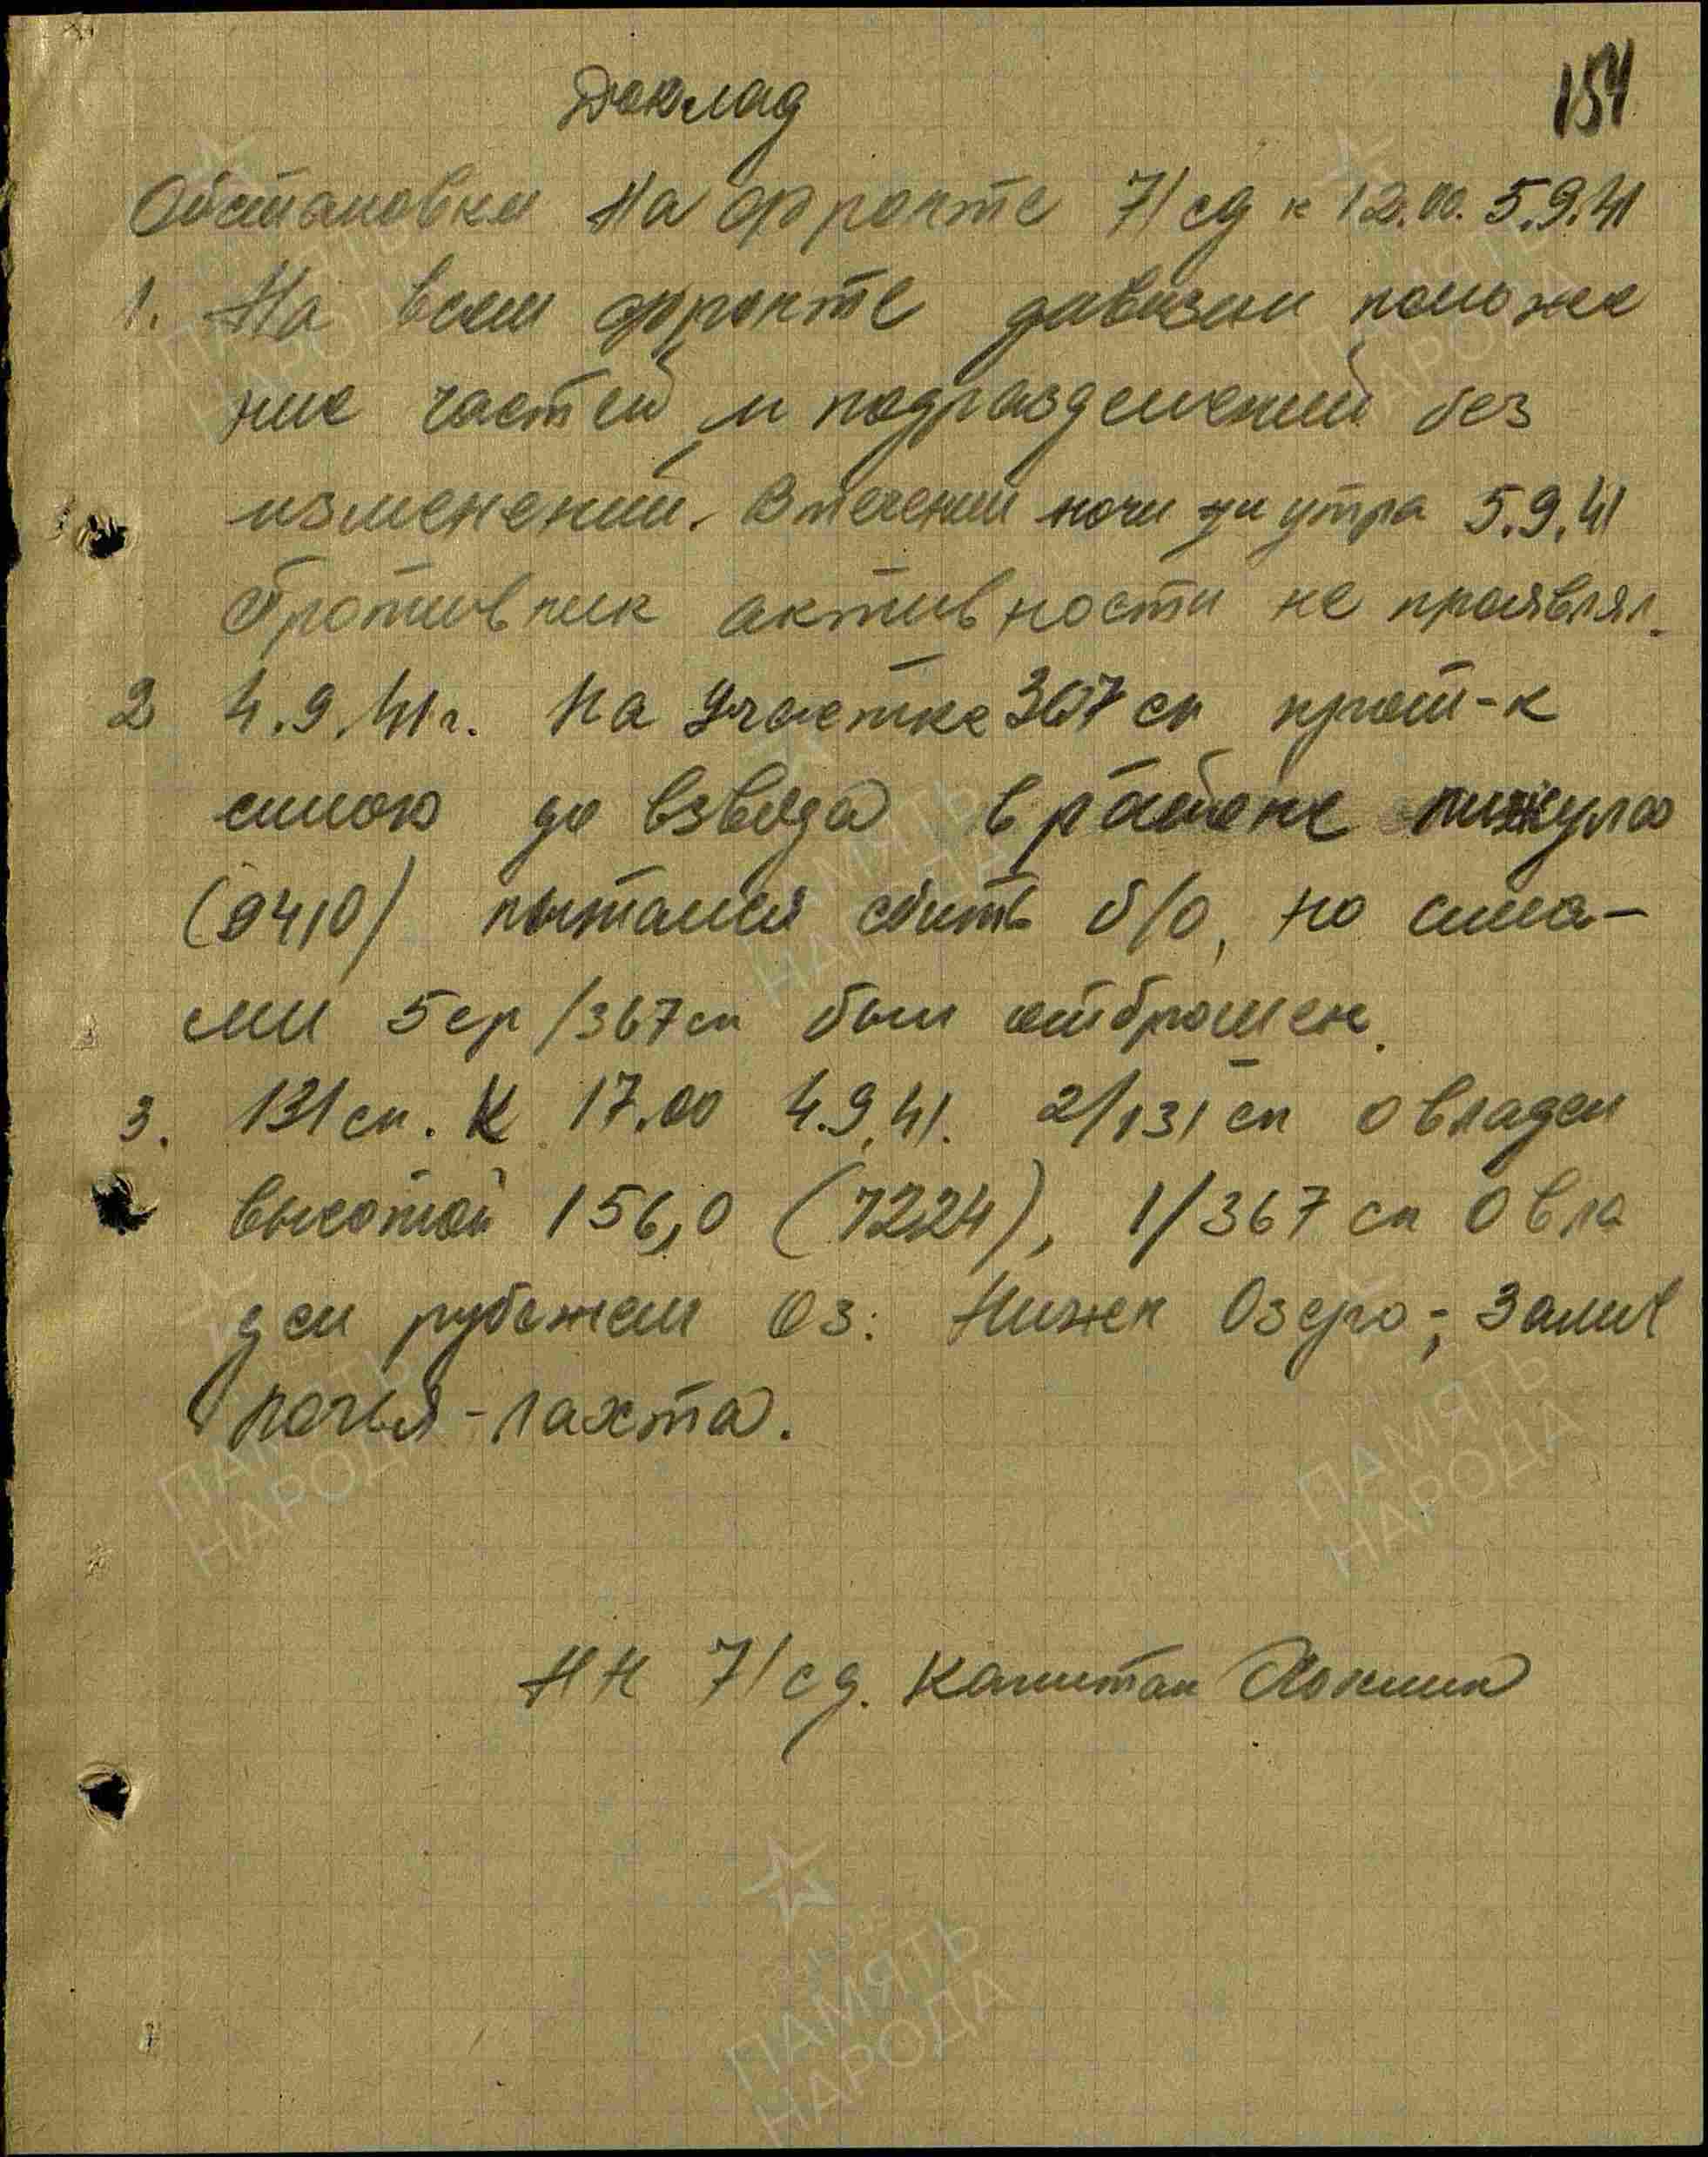 154
Доклад
Обстановки на фронте 71 сд к 12.00. 5.9.41
1. На всем фронте дивизии положе
ние частей и подразделений без
изменений. В течении ночи и утра 5.9.41
Противник активности не проявлял.
2 4.9.41г. На участке 367 сп прот-к
силою до взвода в районе
(9410) пытался сбить б/о, но сила-
ми 5 ср/367 сп был отброшен.
3. 131 сп. К 17.00 4.9.41. 2/131 сп овладел
высотой 156,0 (7224), 1/367 сп овла
дел рубежем Оз. Нижен Озеро-, залив
почья-лахта.
НН 71 сд. Капитан
ПАМЯТЬ
НАРОДА
ПАМЯТЬ
НАРОДА
ПАМЯТЬ
НАРОДА
ПАМЯТЬ
НАРОДА
ПАМЯТЬ
НАРОДА
ПАМЯТЬ
НАРОДА